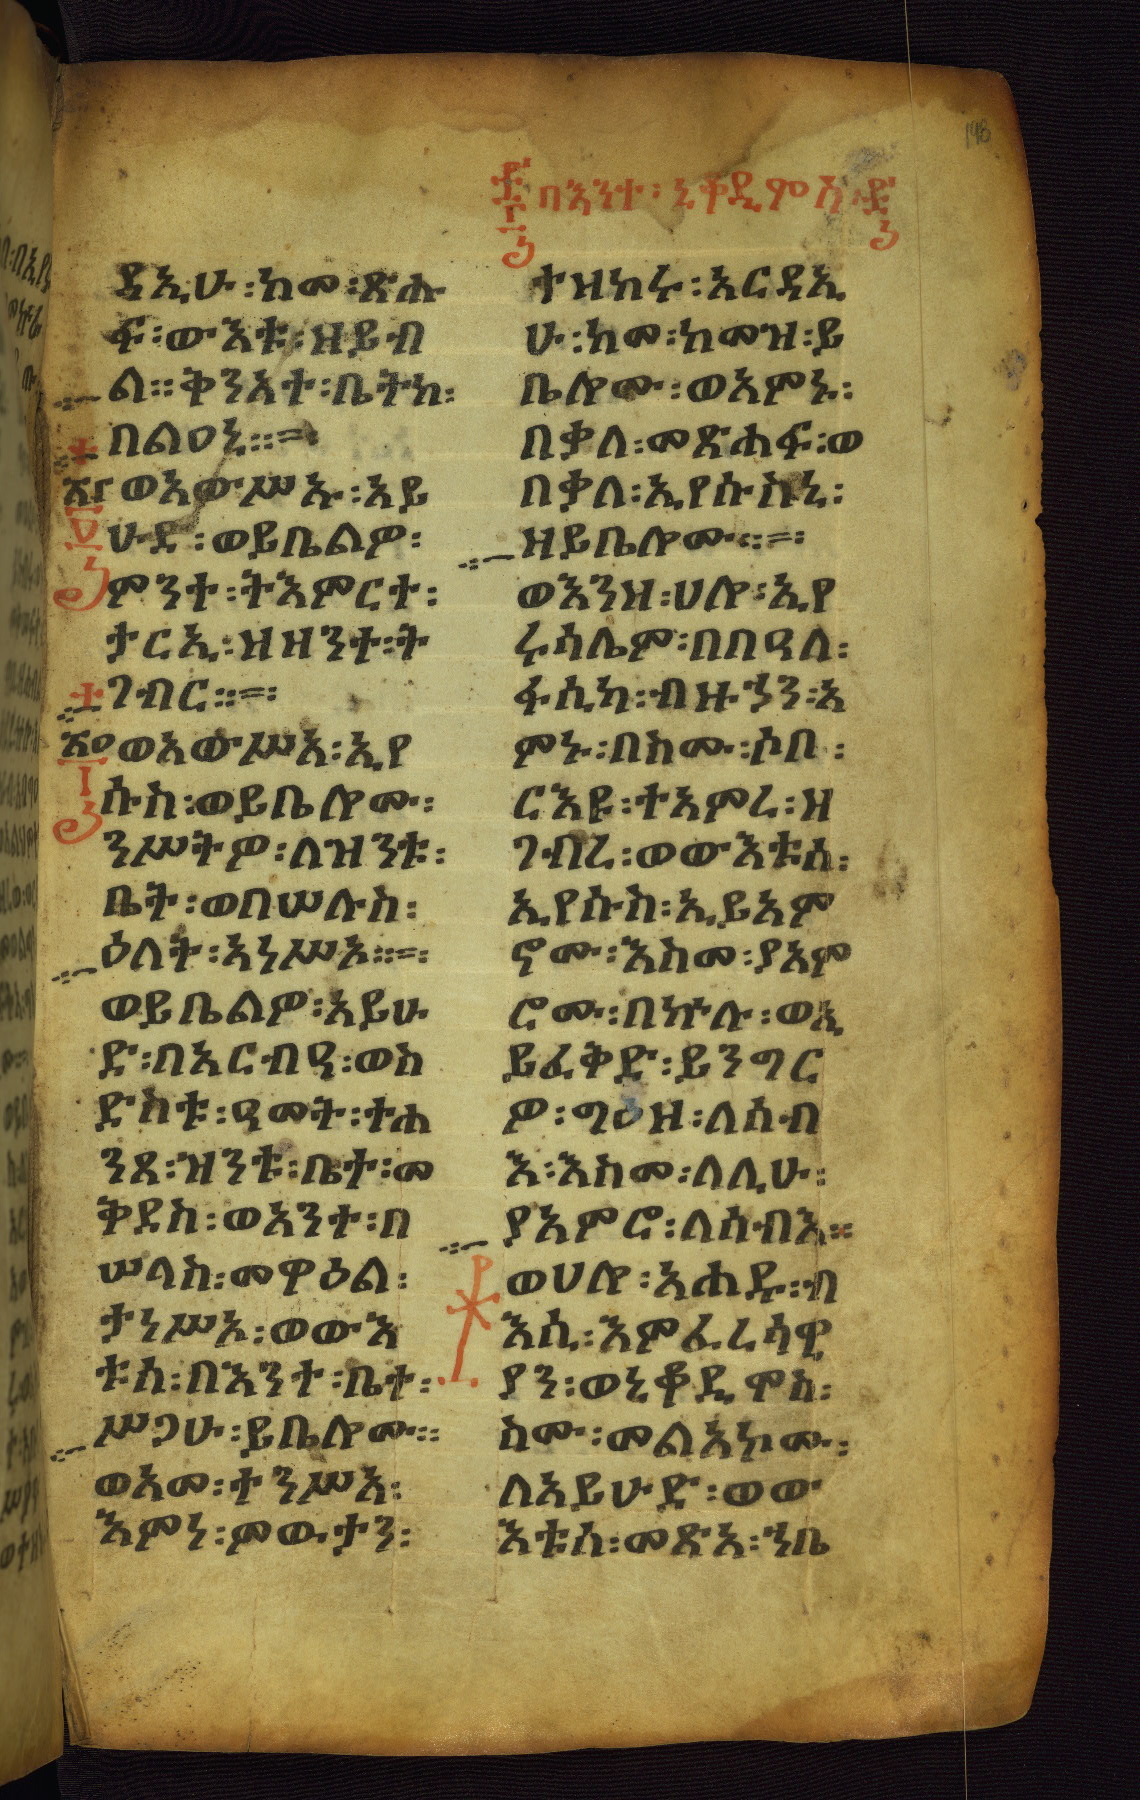 በእንተ፡ ኒቆዲሞስ፡
ዳኢሁ፡ከመ፡ጽሑ
ፍ፡ውእቱ፡ዝይብ
ል፡፡ቅንአተ፡ቤትከ፡
በልዐኒ፡፡
ወአውሥኡ፡አይ
ሁድ፡ወይቤልዎ፡
ምንተ፡ትእምርተ፡
ታርኢ፡ዝዘንተ፡ት
ገብር፡፡
ወአውሥአ፡ኢየ
ሱስ፡ወይቤሎሙ፡
ንሥትዎ፡ለዝንቱ፡
ቤት፡ወበሠሉስ፡
ዕለት፡አነሥኦ፡፡
ወይቤልዎ፡አይሁ
ድ፡በአርብዓ፡ወስ
ድስቱ፡ዓመት፡ተሐ
ንጸ፡ዝንቱ፡ቤተ፡መ
ቅደስ፡ወአንተ፡በ
ሠላስ፡መዋዕል፡
ታነሥኦ፡ወውእ
ቱሰ፡በእንተ፡ቤተ፡
ሥጋሁ፡ይቤሎሙ፡፡
ወአመ፡ተንሥአ፡
እምነ፡ምውታን፡
ተዝከሩ፡አርዳኢ
ሁ፡ከመ፡ከመዝ፡ይ
ቤሎሙ፡ወአምኑ፡
በቃለ፡መጽሐፍ፡ወ
በቃለ፡ኢየሱስኒ፡
ዘይቤሎሙ፡፡
ወእንዘ፡ሀሎ፡ኢየ
ሩሳሌም፡በበዓለ፡
ፋሲካ፡ብዙኃን፡አ
ምኑ፡በስሙ፡ሶበ፡
ርእዩ፡ተአምረ፡ዘ
ገብረ፡ወውእቱሰ፡
ኢየሱስ፡ኢይአም
ኖሙ፡እስመ፡ያአም
ሮሙ፡በኵሉ፡ወኢ
ይፈቅድ፡ይንግር
ዎ፡ግዕዘ፡ለሰብ
እ፡እስመ፡ለሊሁ፡
ያአምሮ፡ለሰብእ፡፡
ወሀሎ፡አሐዱ፡ብ
እሲ፡እምፈሪሳዊ
ያን፡ወኒቆዲሞስ፡
ስሙ፡መልአኮሙ፡
ለአይሁድ፡ወው
እቱሰ፡መጽአ፡ኀቤ